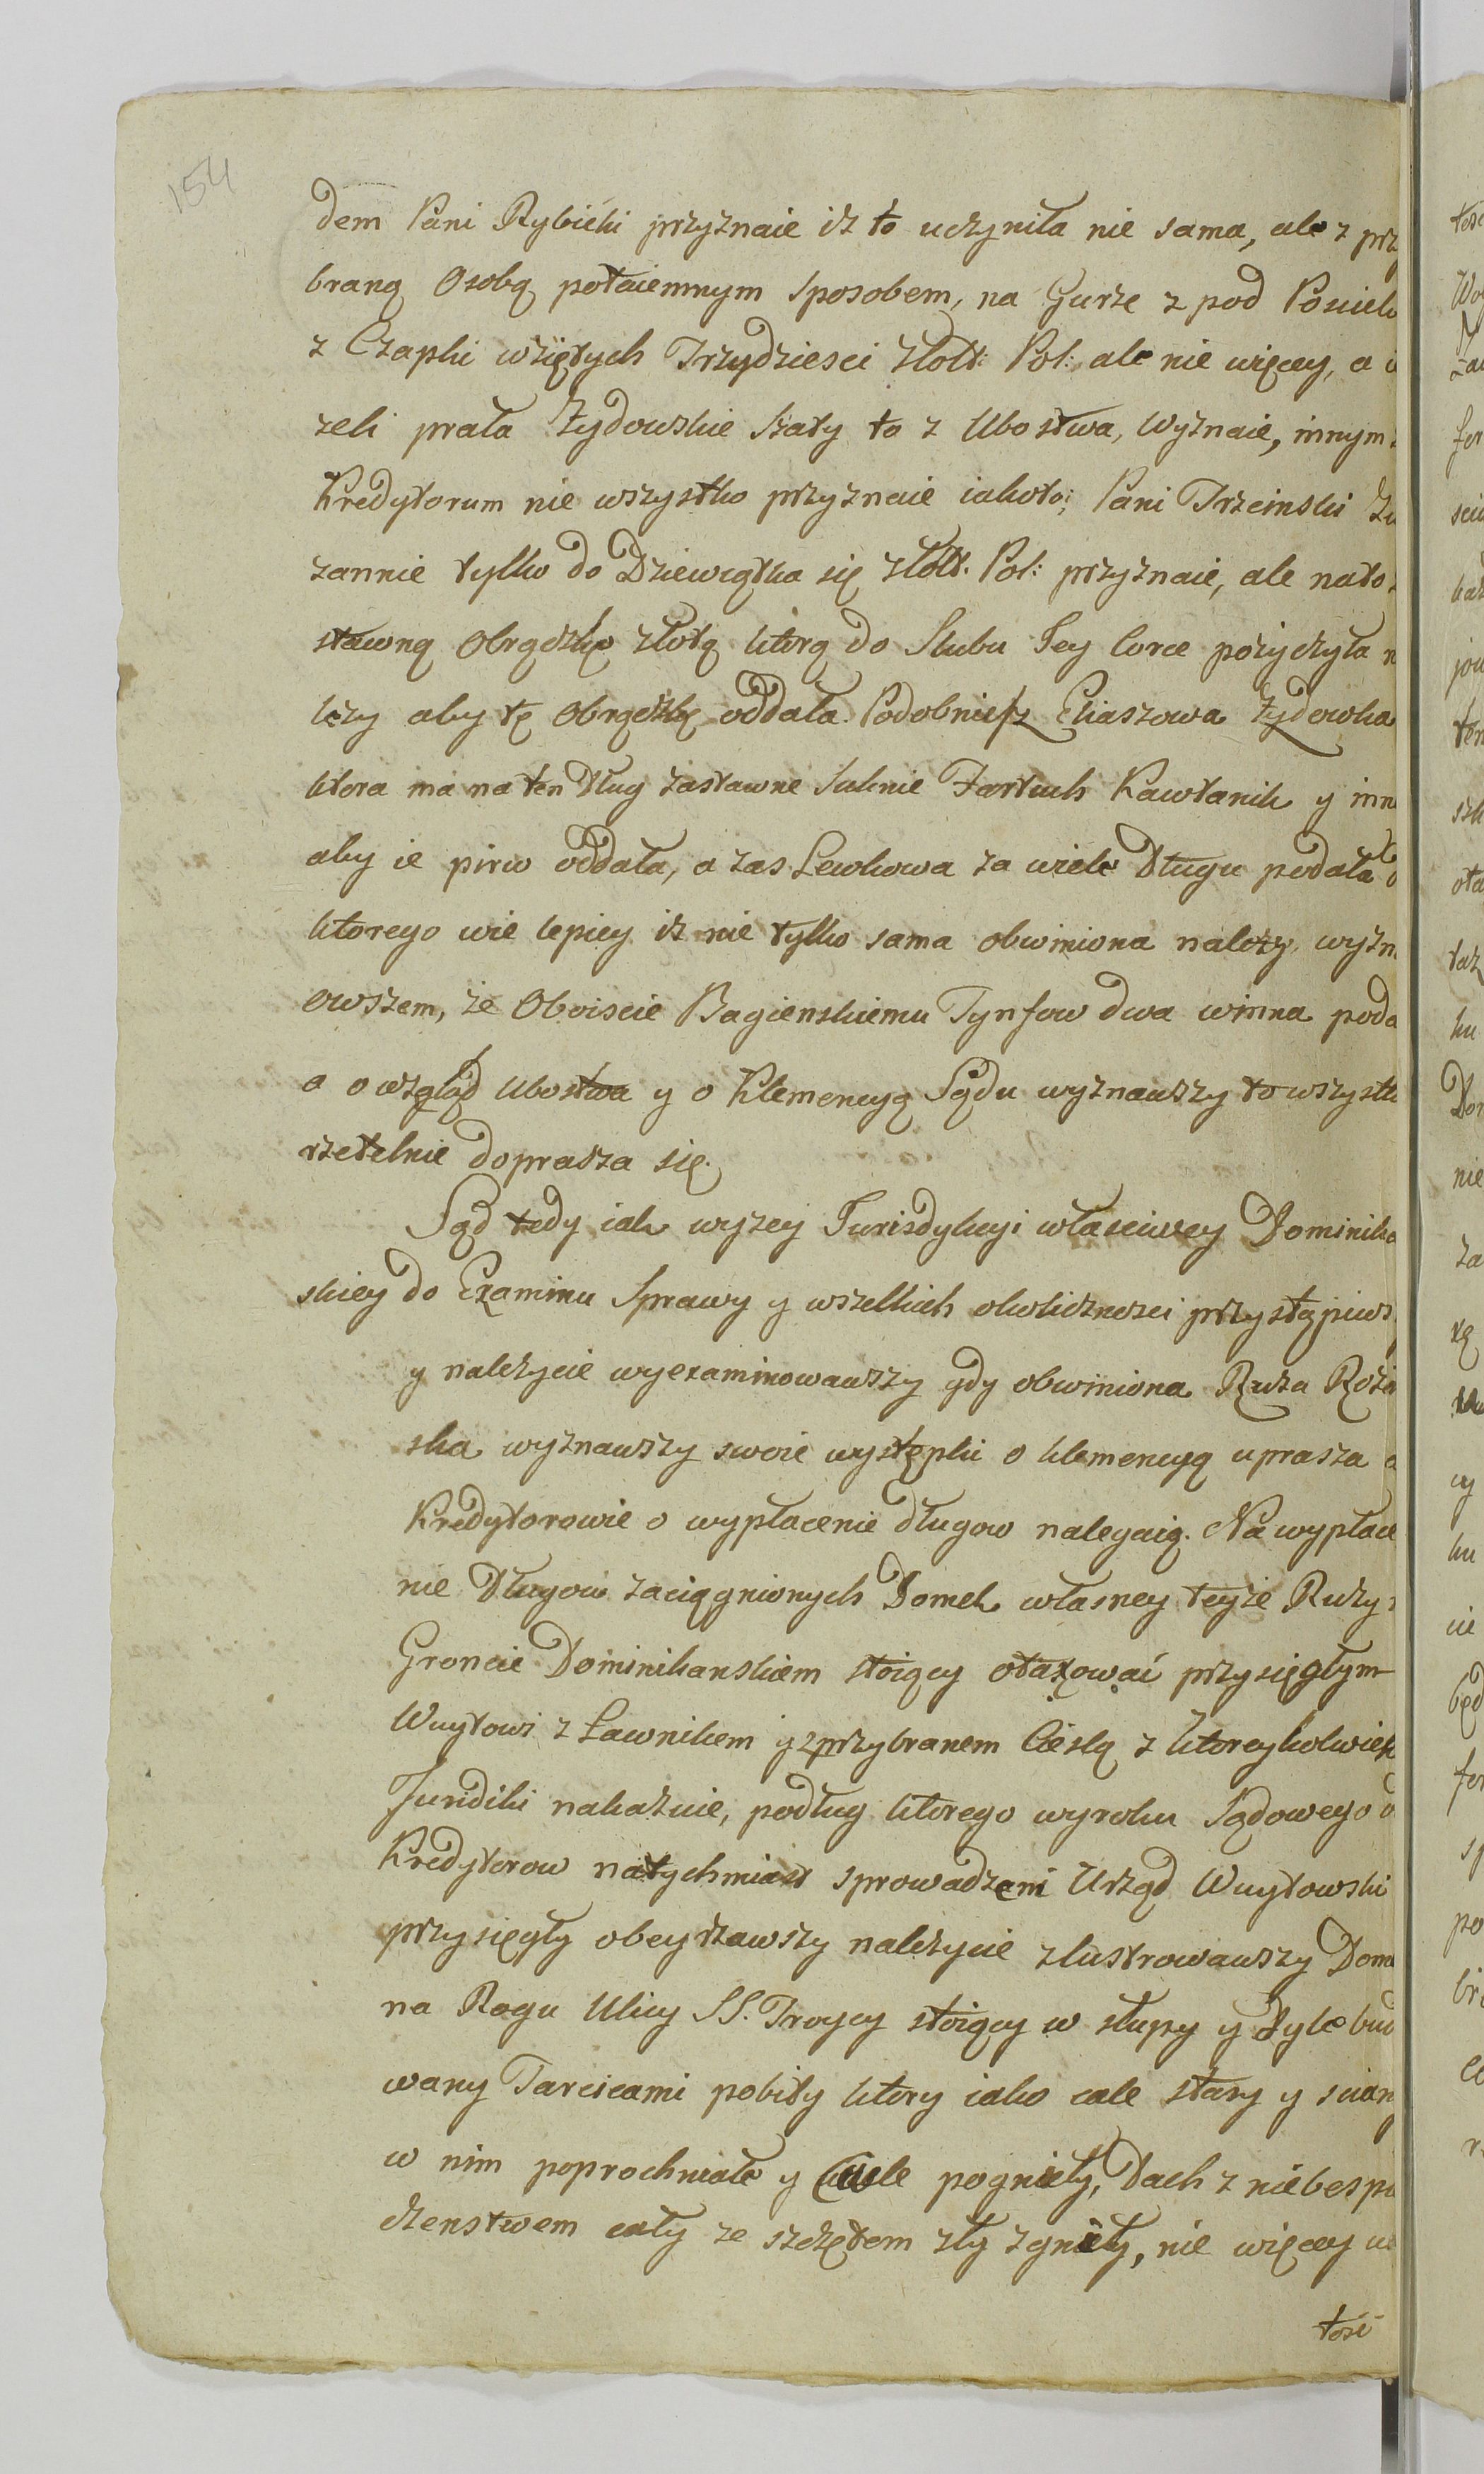 154
dem Pani Rybicki przyznaie iż to uczyniła nie sama, ale z prz
braną Osobą potaiemnym sposobem, na Gurze z pod Posciele
z Czapki wziętych Trzydziesci złott: Pol: ale nie więcey, a i
zeli prała Zydowskie Szaty to z Ubostwa, wyznaie, innym
Kredytorum nie wszystko przyznaie iakoto; Pani Trzcinski Zu
zannie tylko do Dziewiątka się złott. Pol: przyznaie, ale nato
stawną Obrączkę złotą ktorą do Slubu Jey Corce pozyczyła
lezy aby tę Obrączkę oddała. Podobniesz Eliaszowa Zydowka
ktora ma na ten Dług zastawne Suknie Fartuch Kawtanik y inn
aby ie pirw oddała, a zas Lewkowa za wiele Długu podała
ktorego wie lepiey iż nie tylko sama obwiniona nalezy, wyzn
owszem, że Oboiscie Bagienskiemu Tynfow dwa winna poda
a o wzgląd Ubostwa y o Klemencyą Sądu wyznawszy to wszystk
rzetelnie doprasza się.
Sąd tedy iak wyzey Jurisdykcyi własciwey Dominika
skiey do Examinu Sprawy y wszelkich okolicznosci przystąpiws
y nalezycie wyexaminowawszy gdy obwiniona Ruza Rożan
ska wyznawszy swoie występki o klemencyą uprasza a
Kredytorowie o wypłacenie długow nalegaią. Na wypłace
nie Długow zaciągnionych Domek własney teyże Ruzy
Groncie Dominikanskiem stoiący otaxować przysięgłym
Wuytowi z Ławnikem y z przybranem Cieslą z ktoreykolwiek
Juridiki nakazuie, podług ktorego wyroku Sądowego o
Kredytorow natychmiast sprowadzeni Urząd Wuytowski
przysięgły obeyrzawszy nalezycie zlustrowawszy Dome
na Rogu Ulicy SS. Troycy stoiący w słupy y dyle bud
wany Tarcicami pobity ktory iako cale stary y scian
w nim poprochniałe y wele pogniły, Dach z niebespi
czenstwem cały ze szczętem zły zgniły, nie więcey w
tosć